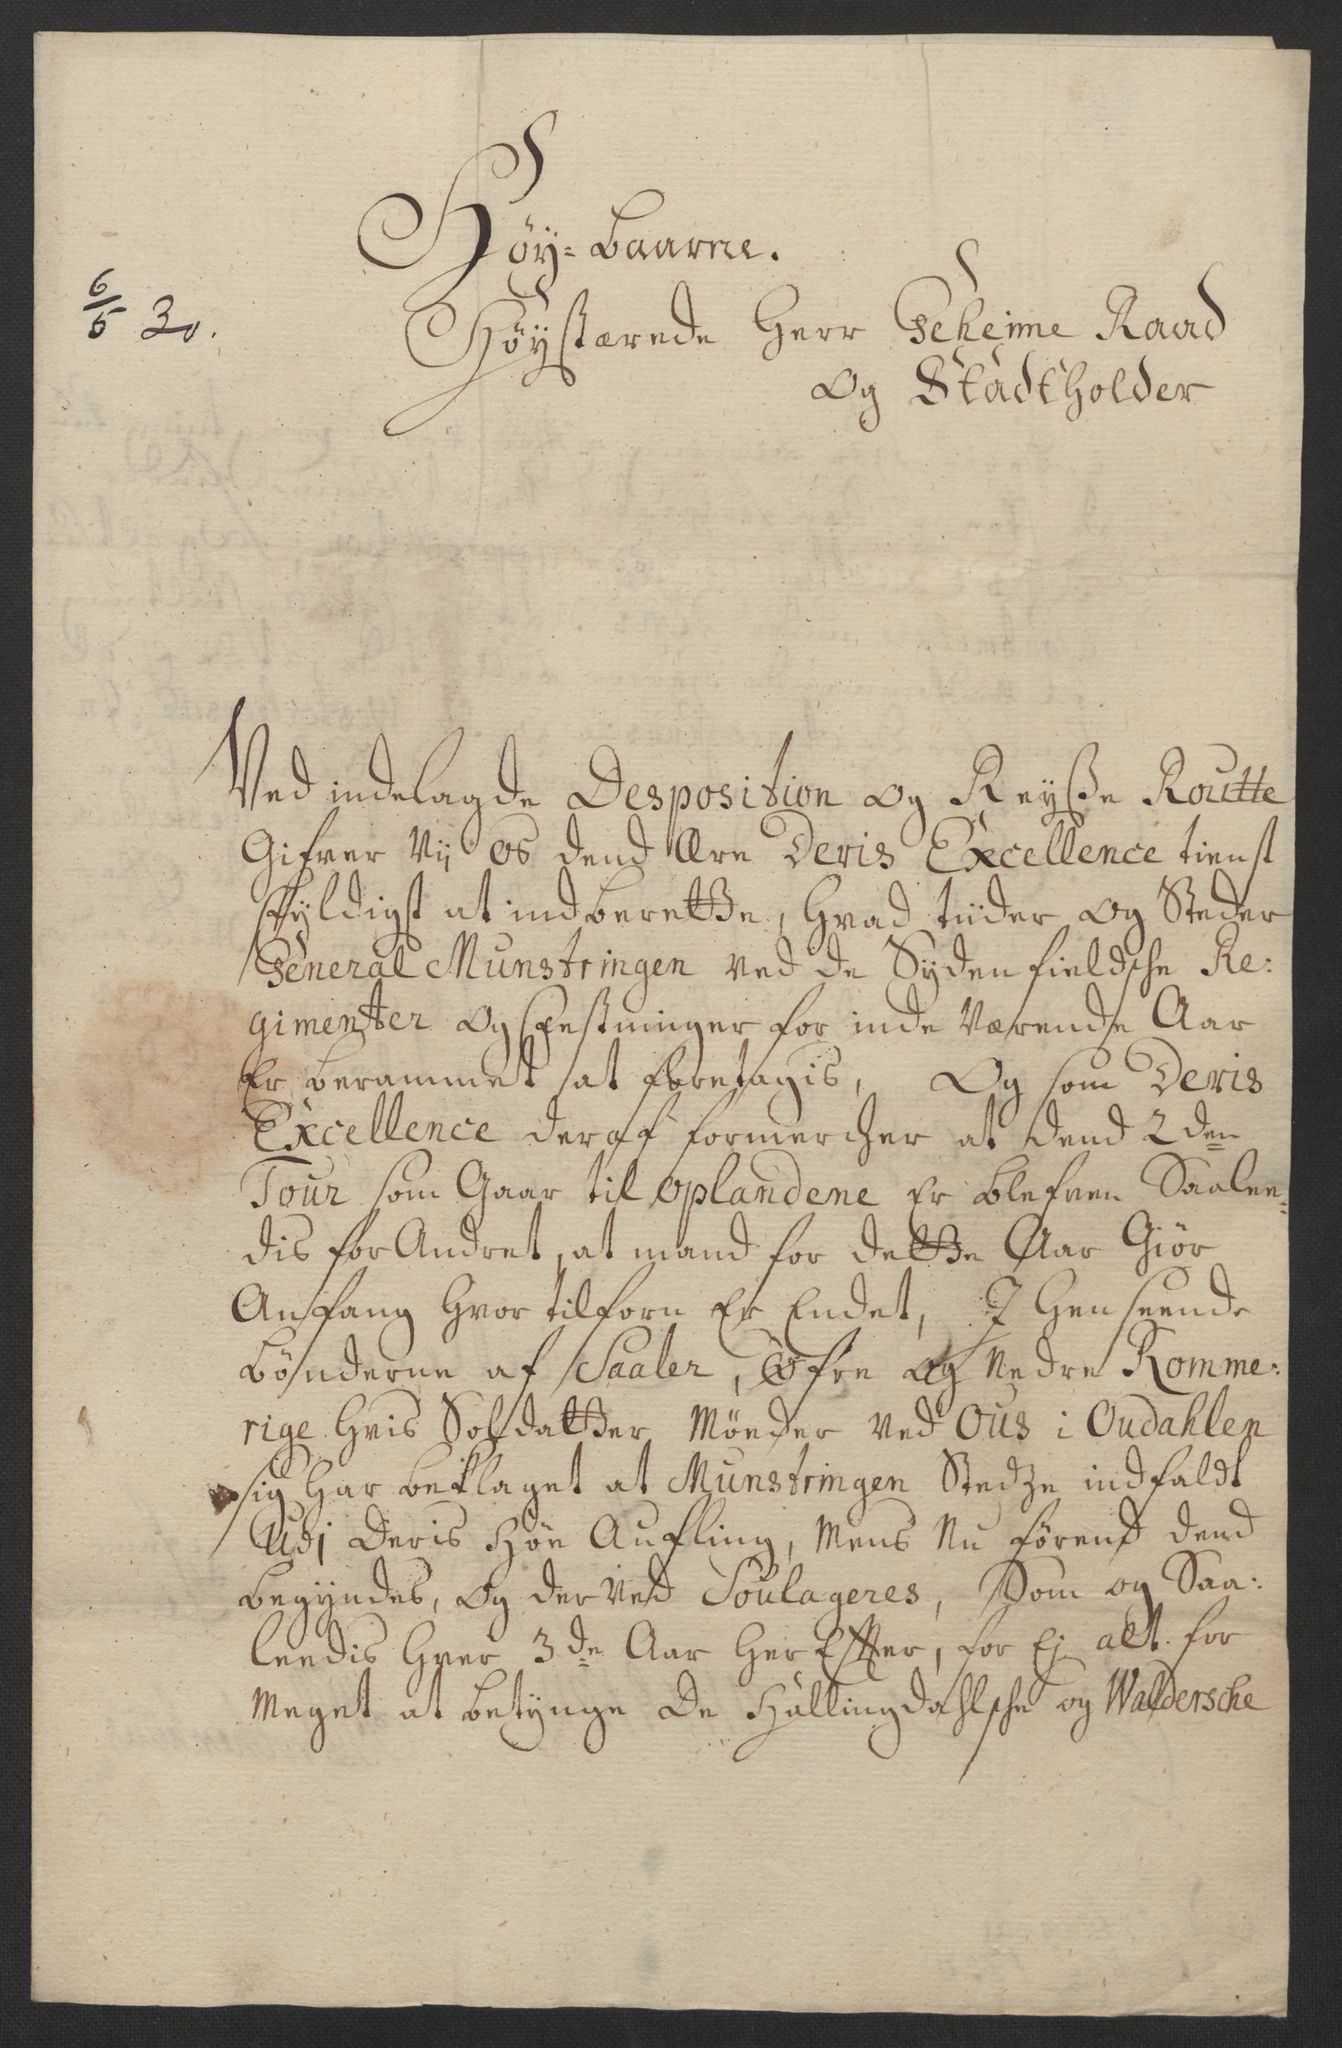 Høy-baarne.
6/5 30.
Høystærede Herr Geheime Raad
Og Stadtholder
Ved indelagde Desposition og Reyße Routte
Gifver Vij os dend Ære Deris Excellence tienst
skyldigst at indberette, Hvad tiider og Steder
General Munstringen ved de Sydenfieldsche Re:
gimenter og Festninger for inde Værende Aar
Er berammet at foretagis, Og som Deris
Excellence deraf formercher at dend 2den
Tour som Gaar til oplandene Er blefven Saalee=
dis forAndret, at mand for dette Aar Giør
Anfang Hvor tilforn Er Endet, I Henseende
bønderne af Saaler, Øfre og Nedre Romme:
rige Hvis Soldatter Møeder ved Ous i Oudahlen
sig Har beklaget at Munstringen Stedze indfaldt
Udj Deris Høe Aufling, Mens Nu førend dend
begyndes, og derved Soulageres, Som og Saa:
leedis Hver 3de Aar HerEfter, for Ej alt for
Meget at betynge De Hallingdahlsche og Waldersche